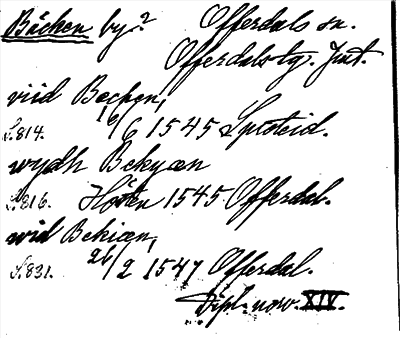 Bächen by? Offerdals sn.
Offerdals tg. Jmt.
viid Bechen,
S. 814. 16/6 1545 Lytsteid.
wydh Bekyæn
S. 816. Hösten 1545 Offerdal.
wid Bekiæn,
S. 831. 26/2 1547 Offerdal.
Dipl. norv. XIV.